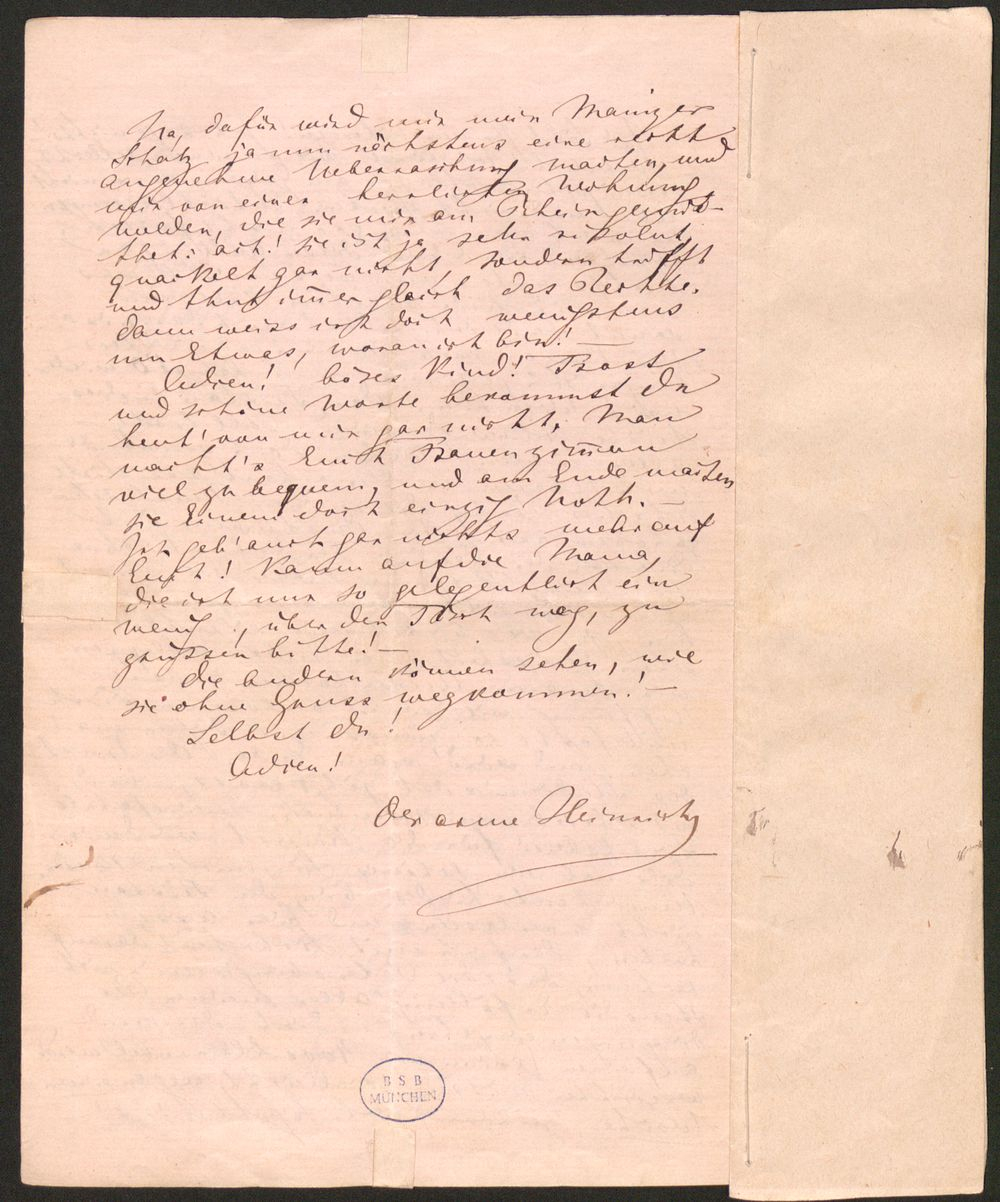 Na, dafür wird mir mein Mainzer
Schatz ja nun nächstens eine recht
angenehme Ueberraschung machen, und
mir von einer herrlichen Wohnung
melden, die sie mir am Rhein gemie-
thet: ach! sie ist ja sehr resolut,
quackelt gar nicht, sondern trifft
und thut im̅er gleich das Rechte.
dann weiss ich doch wenigstens
um Etwas, woran ich bin! —
Adieu! böses Kind! Trost
und schöne Worte bekommst du
heut' von mir gar nicht. Man
macht's Euch Frauenzim̅ern
viel zu bequem, und am Ende machen
sie Einem doch einzig Noth. —
Ich geb' auch gar nichts mehr auf
Euch! Kaum auf die Mama,
die ich nur so gelegentlich ein
wenig, über den Tisch weg, zu
grüssen bitte! —
die andern können sehen, wie
sie ohne Gruss wegkommen! —
Selbst du!
Adieu!
Der arme Heinrich
B S B
MÜNCHEN